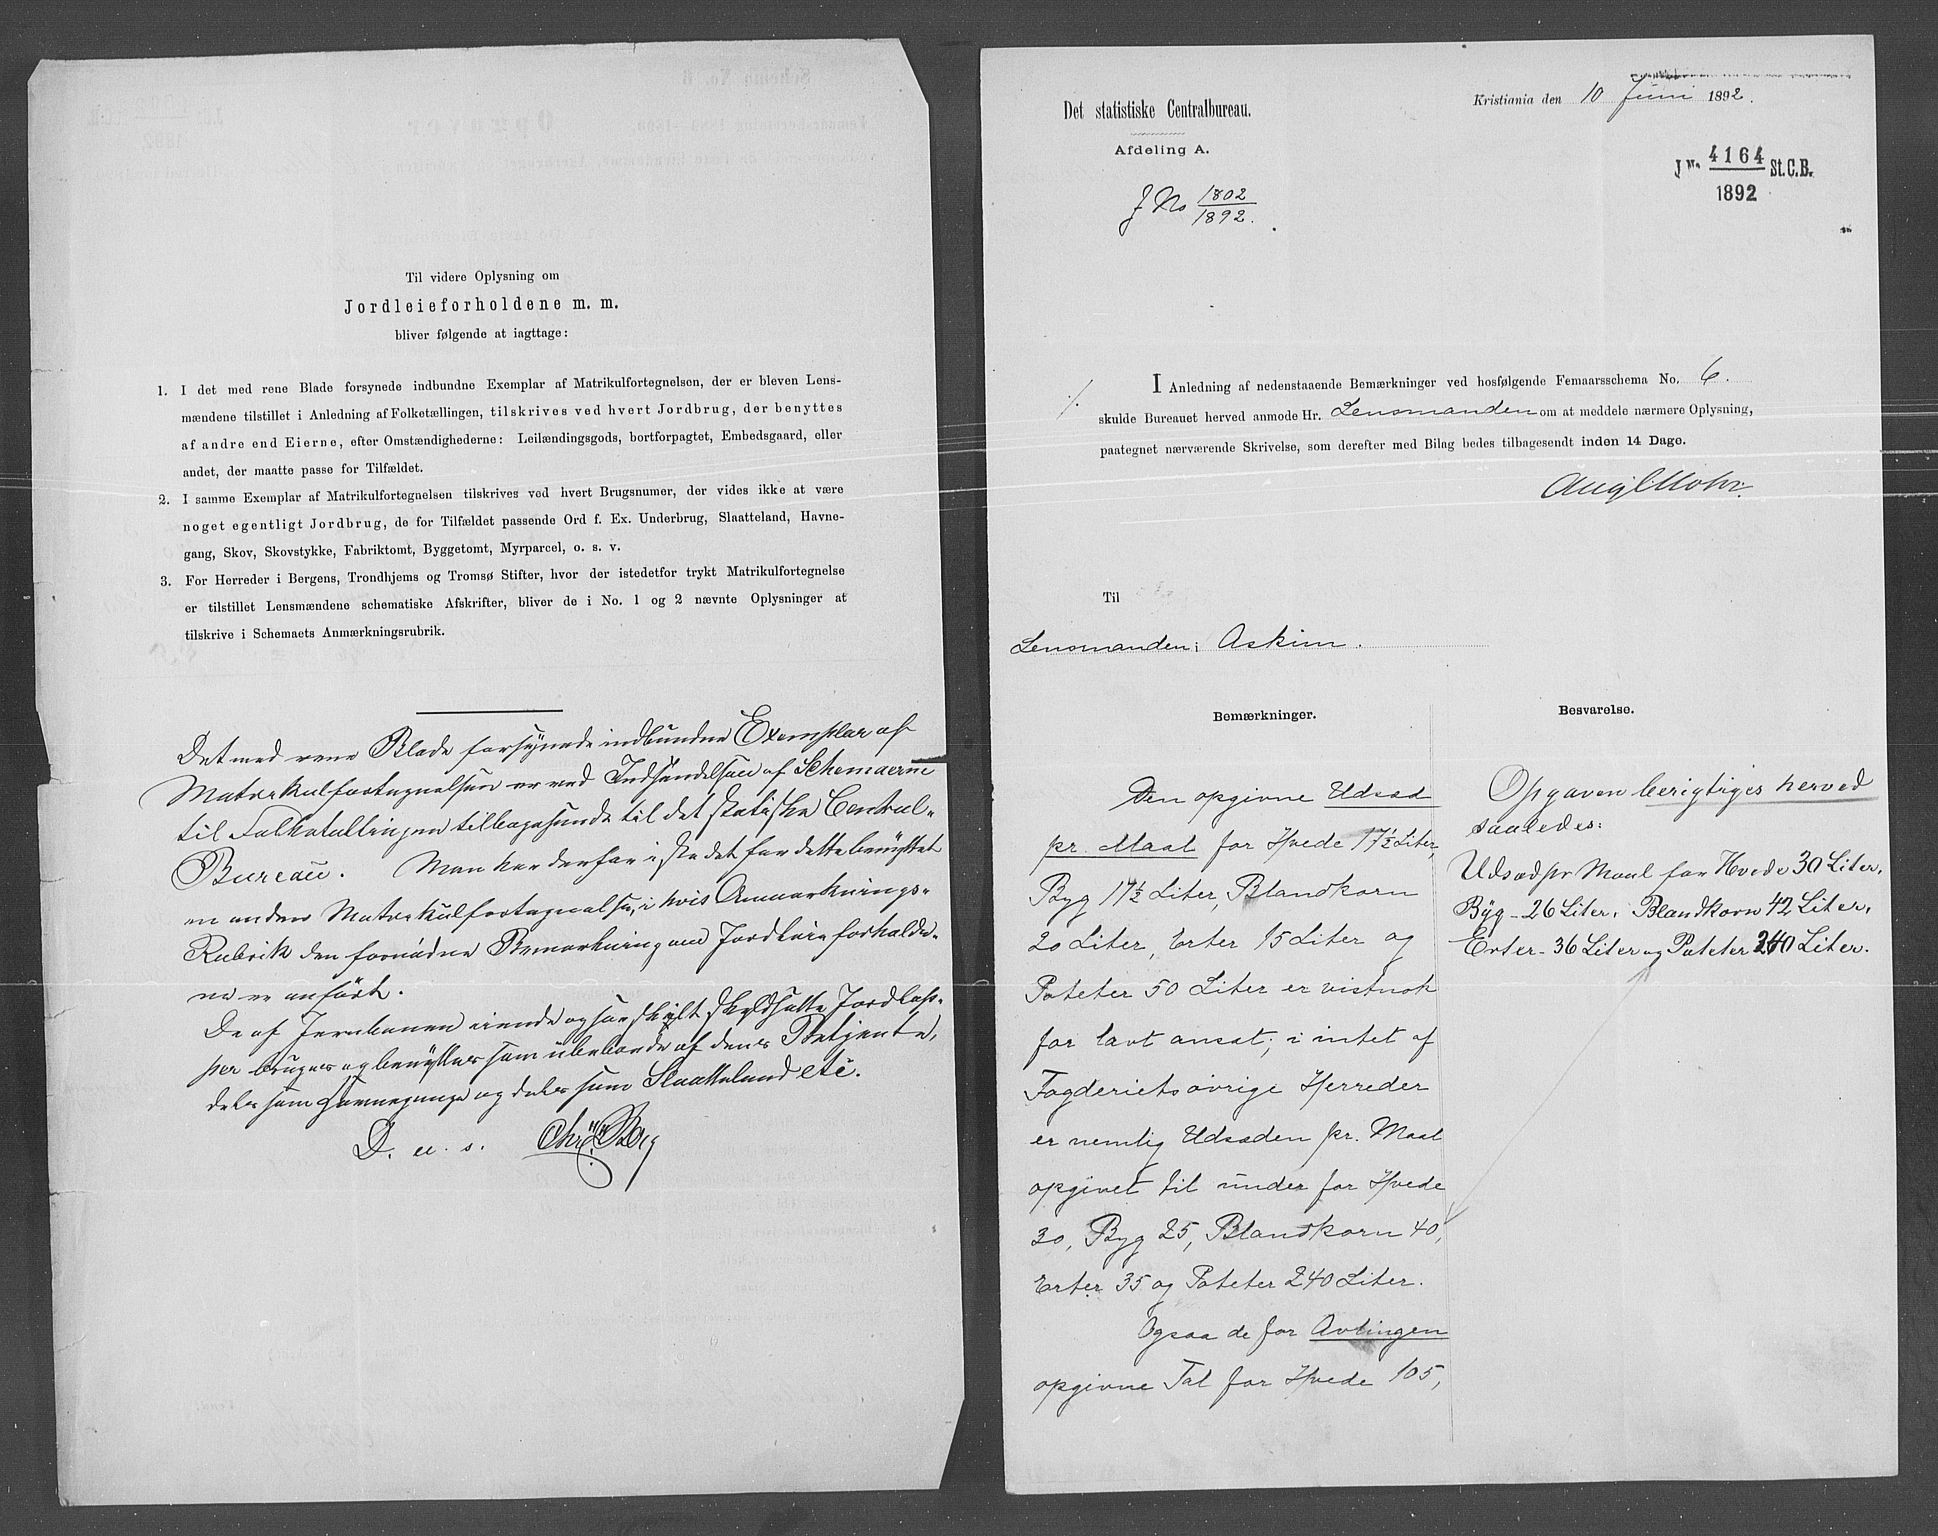 Til videre Oplysning om
Jordleieforholdene m. m.
bliver følgende at iagttage:
1. I det med rene Blade forsynede indbundne Exemplar af Matrikulfortegnelsen, der er bleven Lens-
mændene tilstillet i Anledning af Folketællingen, tilskrives ved hvert Jordbrug, der benyttes
af andre end Eierne, efter Omstændighederne: Leilændingsgods, bortforpagtet, Embedsgaard, eller
andet, der maatte passe for Tilfældet.
2. I samme Exemplar af Matrikulfortegnelsen tilskrives ved hvert Brugsnumer, der vides ikke at være
noget egentligt Jordbrug, de for Tilfældet passende Ord f. Ex. Underbrug, Slaatteland, Havne-
gang, Skov, Skovstykke, Fabriktomt, Byggetomt, Myrparcel, o. s. v.
3. For Herreder i Bergens, Trondhjems og Tromsø Stifter, hvor der istedetfor trykt Matrikulfortegnelse
er tilstillet Lensmændene schematiske Afskrifter, bliver de i No. 1 og 2 nævnte Oplysninger at
tilskrive i Schemaets Anmærkningsrubrik.
Det med rene Blade forsynede indbundne Exemplar af
Matrikulfortegnelsen er ved Indsendelsen af Schemaerne
til Folketællingen tilbagesendt til det statistiske Central-
Bureau. Man har derfor istedet for dette benyttet
en anden Matrikulfortegnelse, i hvis Anmærknings-
Rubrik den fornødne Bemærkning om Jordleieforholde-
ne er anført.
De af Jernbanen eiende og særskilt skyldsatte Jordlap-
per bruges og benyttes som ubeboede af dens Betjente,
dels som Havnegange og dels som Slaatteland etc.
D. u. s. Chr. Berg
Det statistiske Centralbureau.
Afdeling A.
J No 1802
1892.
Kristiania den 10 Juni 1892.
J No. 4164 St.C.B.
1892
I Anledning af nedenstaaende Bemærkninger ved hosfølgende Femaarsschema No. 6.
./. skulde Bureauet herved anmode Hr. Lensmanden om at meddele nærmere Oplysning,
paategnet nærværende Skrivelse, som derefter med Bilag bedes tilbagesendt inden 14 Dage.
Aug. Mohr.
Til
Lensmanden i Askim.
Bemærkninger.
Den opgivne Udsæd
pr. Maal for Hvede 17½ Liter,
Byg 17½ Liter, Blandkorn
20 Liter, Erter 15 Liter og
Poteter 50 Liter er vistnok
for lavt ansat; i intet af
Fogderiets øvrige Herreder
er nemlig Udsæden pr. Maal
opgivet til under for Hvede
30, Byg 25, Blandkorn 40,
Erter 35 og Poteter 240 Liter.
Ogsaa de for Avlingen
opgivne Tal for Hvede 105,
Besvarelse.
Opgaven berigtiges herved
saaledes:
Udsæd pr Maal for Hvede 30 Liter,
Byg - 26 Liter, Blandkorn 42 Liter,
Erter - 36 Liter og Poteter 240 Liter.